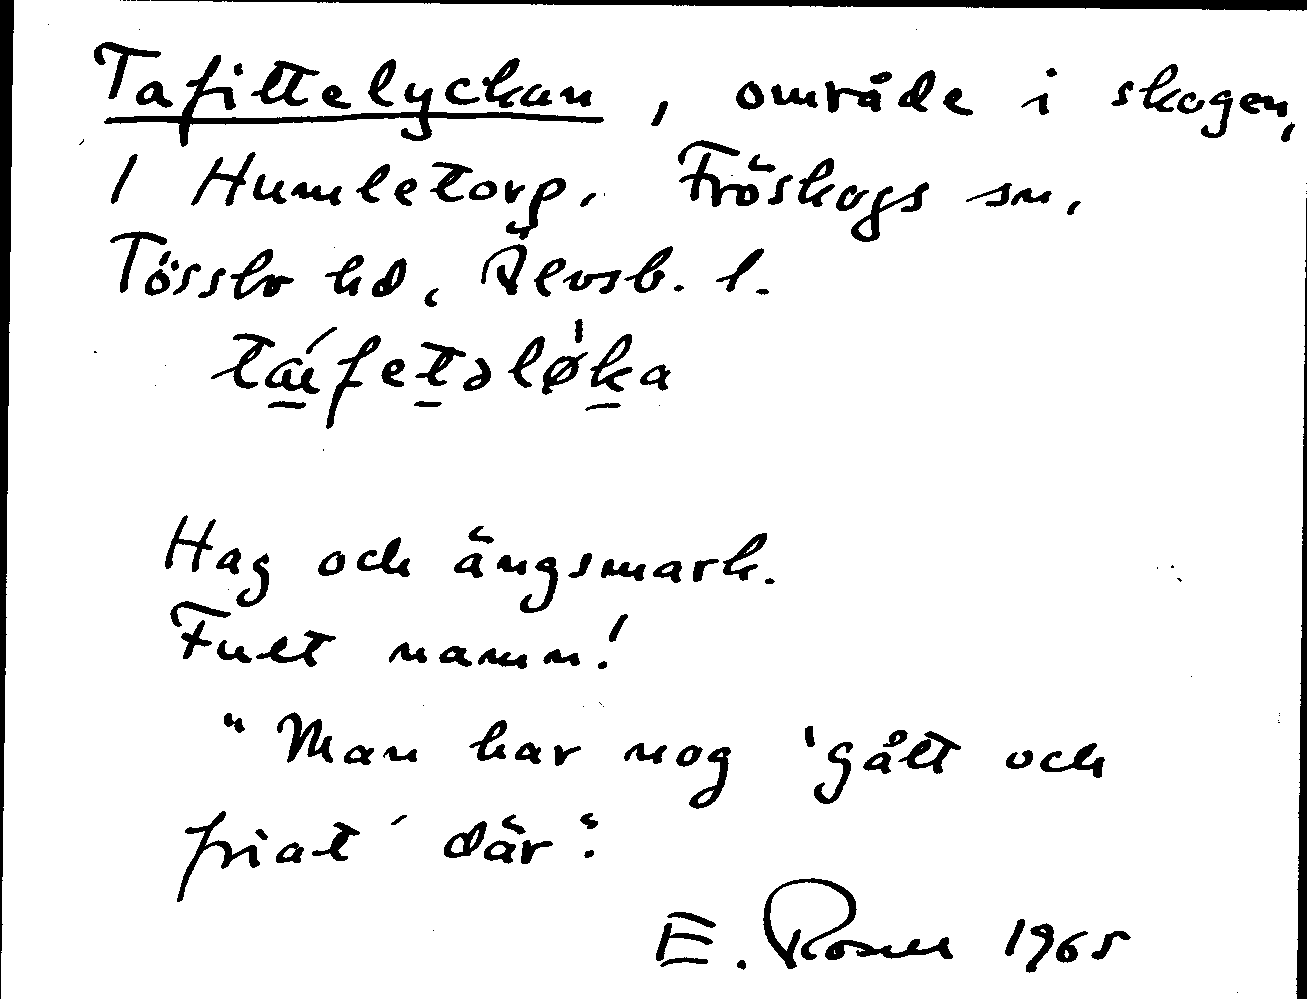 Tafittelyckan, område i skogen,
1 Humletorp, Fröskogs sn,
Tössbo hd, Älvsb. l.
táfetəløka
Hag och ängsmark.
Fult namn!
"Man har nog 'gått och
friat' där".
E. Rosell 1965